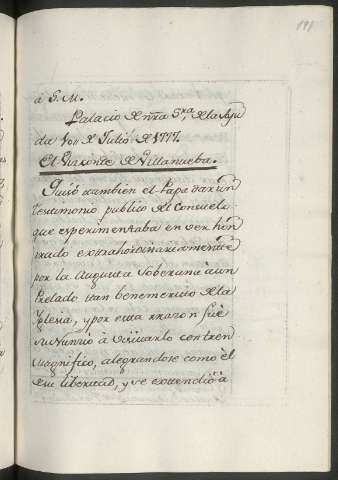 191
à S. M.
Palacio de ñra Sra, de la Ayu
da 1011 de Julio de 1777.
El Vizconde de Villanueba.
Quisó tambien el Papa dar un
Testimonio publico del Consuelo
que esperimentaba en ver hon
rrado extrahordinariamente
por la Augusta Soberana à un
Prelado tan benemerito de la
Yglesia, y por esta rrazon fuè
su Nunzio à visitarlo con tren
magnifico, alegrandose como èl
de su libertad, y se extendiò à